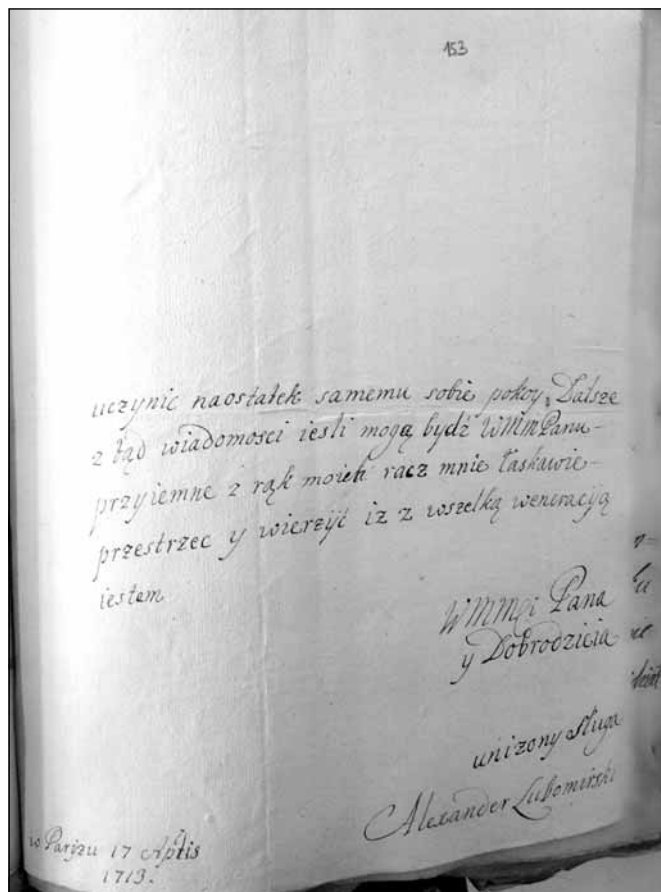 153
uczynic naostatek samemu sobie pokoy, Dalsze
z tąd wiadomosci iesli mogą bydź WMMPanu-
przyiemne z rąk moich racz mnie łaskawie-
przestrzec y wierzyć iz z wszelką weneracyją
iestem
WMMgi Pana
y Dobrodzicia
unizony sługa
Alexander Lubomirski
w Paryzu 17 Aplis
1713.